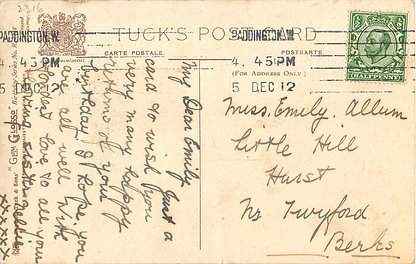 2316
TUCK'S POST CARD
CARTE POSTALE.
POSTKARTE.
(For Address Only.)
PADDINGTON. W
4. 45 PM
5 DEC 12
PADDINGTON. W
4. 45 PM
5 DEC 12
HALFPENNY
My Dear Emily
Just a
card to wish you
very many happy
returns of your
birthday I hope you
are all well with
fondest love to all your
loving sister Nellie
xxxxx
Miss. Emily. Allum
Little Hill
Hurst
Nr Twyford
Berks